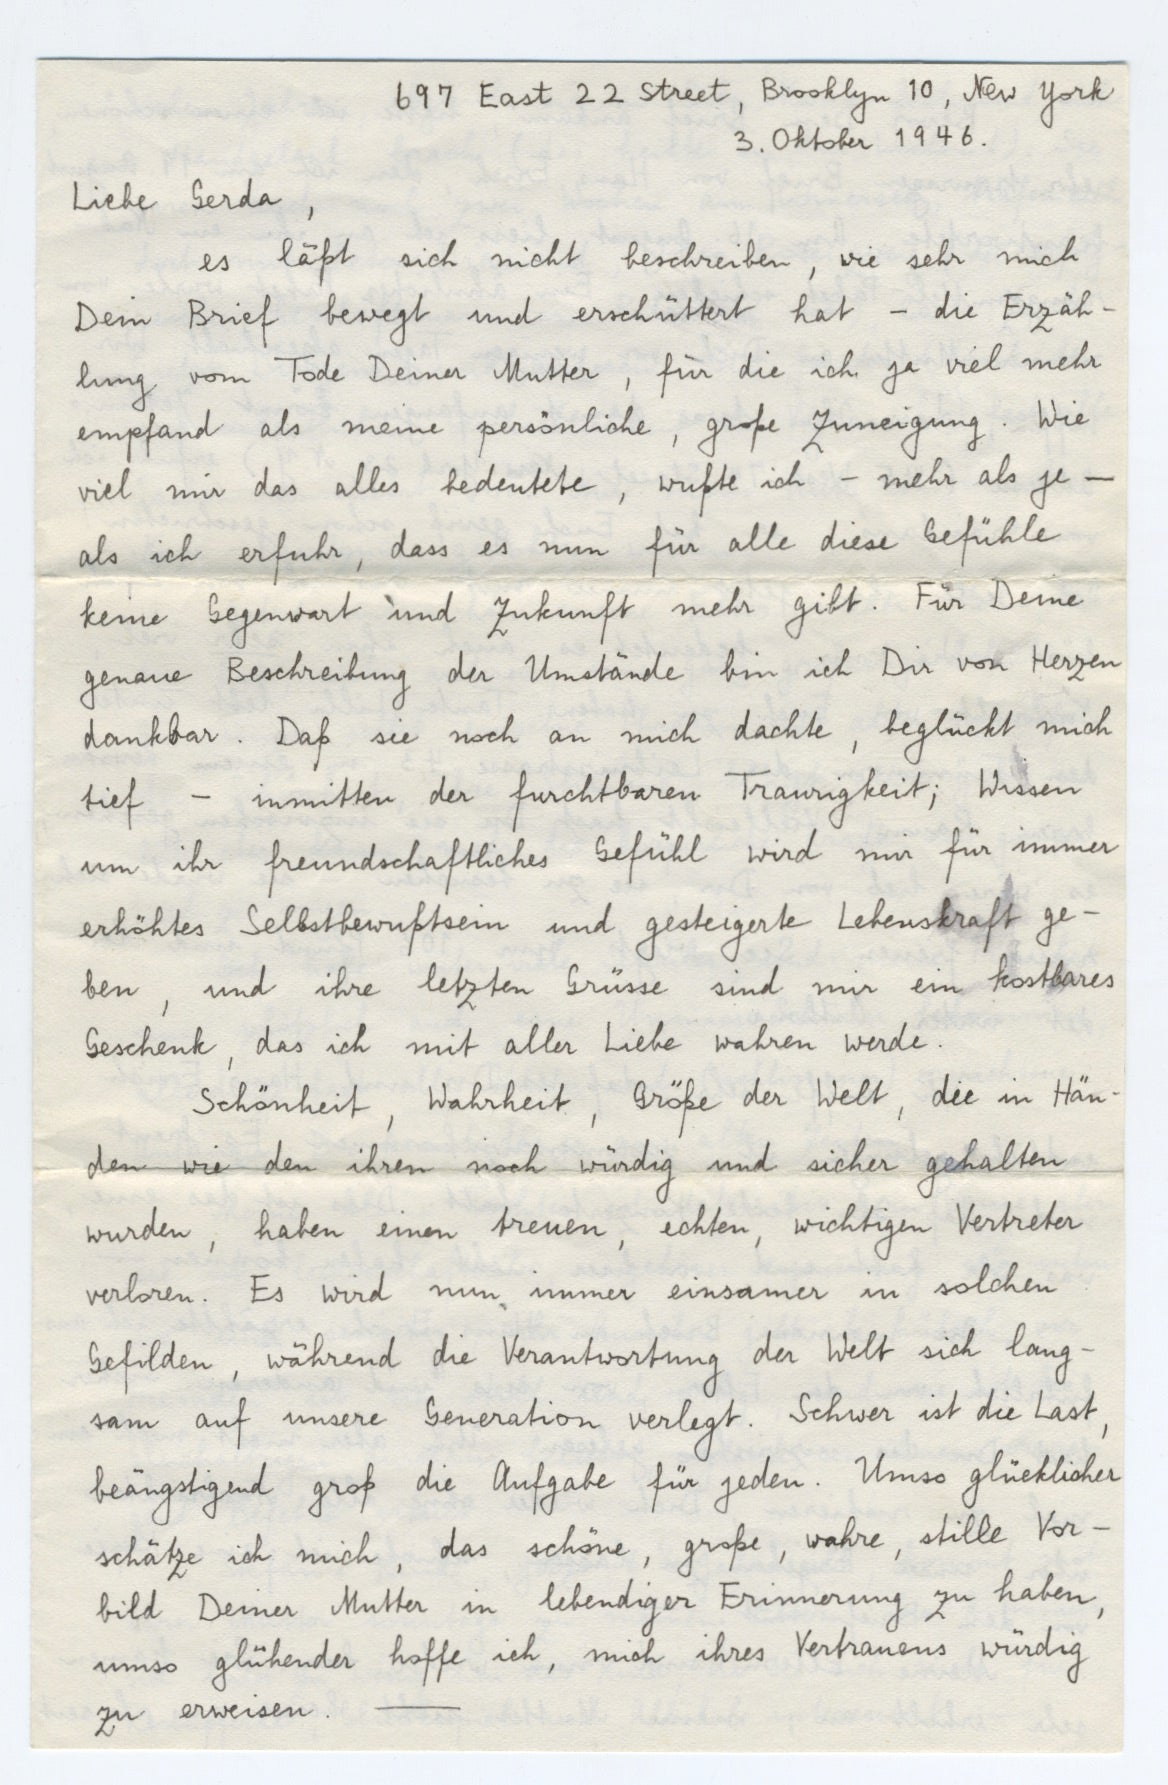 697 East 22 Street, Brooklyn 10, New York
3. Oktober 1946.
Liebe Gerda,
es läßt sich nicht beschreiben, wie sehr mich
Dein Brief bewegt und erschüttert hat – die Erzäh-
lung vom Tode Deiner Mutter, für die ich ja viel mehr
empfand als meine persönliche, große Zuneigung. Wie
viel mir das alles bedeutete, wußte ich – mehr als je –
als ich erfuhr, dass es nun für alle diese Gefühle
keine Gegenwart und Zukunft mehr gibt. Für Deine
genaue Beschreibung der Umstände bin ich Dir von Herzen
dankbar. Daß sie noch an mich dachte, beglückt mich
tief – inmitten der furchtbaren Traurigkeit; Wissen
um ihr freundschaftliches Gefühl wird mir für immer
erhöhtes Selbstbewußtsein und gesteigerte Lebenskraft ge-
ben, und ihre letzten Grüsse sind mir ein kostbares
Geschenk, das ich mit aller Liebe wahren werde.
Schönheit, Wahrheit, Größe der Welt, die in Hän-
den wie den ihren noch würdig und sicher gehalten
wurden, haben einen treuen, echten, wichtigen Vertreter
verloren. Es wird nun immer einsamer in solchen
Gefilden, während die Verantwortung der Welt sich lang-
sam auf unsere Generation verlegt. Schwer ist die Last,
beängstigend groß die Aufgabe für jeden. Umso glücklicher
schätze ich mich, das schöne, große, wahre, stille Vor-
bild Deiner Mutter in lebendiger Erinnerung zu haben,
umso glühender hoffe ich, mich ihres Vertrauens würdig
zu erweisen. —